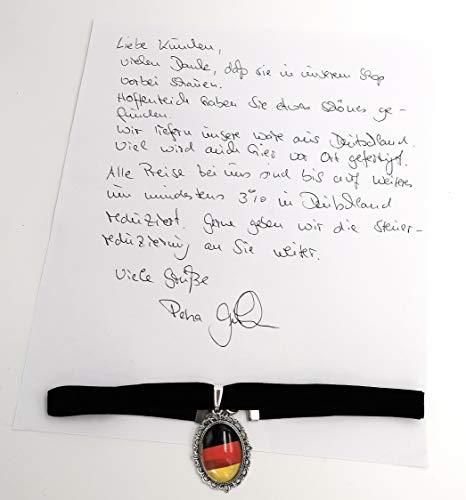 Liebe Kunden,
vielen Dank, daß sie in unserem Shop
vorbei schauen.
Hoffentlich haben Sie etwas schönes ge-
funden.
Wir liefern unsere ware aus Deutschland.
Viel wird auch hier vor Ort gefertigt.
Alle Preise bei uns sind bis auf weiteres
um mindestens 3% in Deutschland
reduziert. Gerne geben wir die Steuer-
reduzierung an Sie weiter.
Viele Grüße
Petra